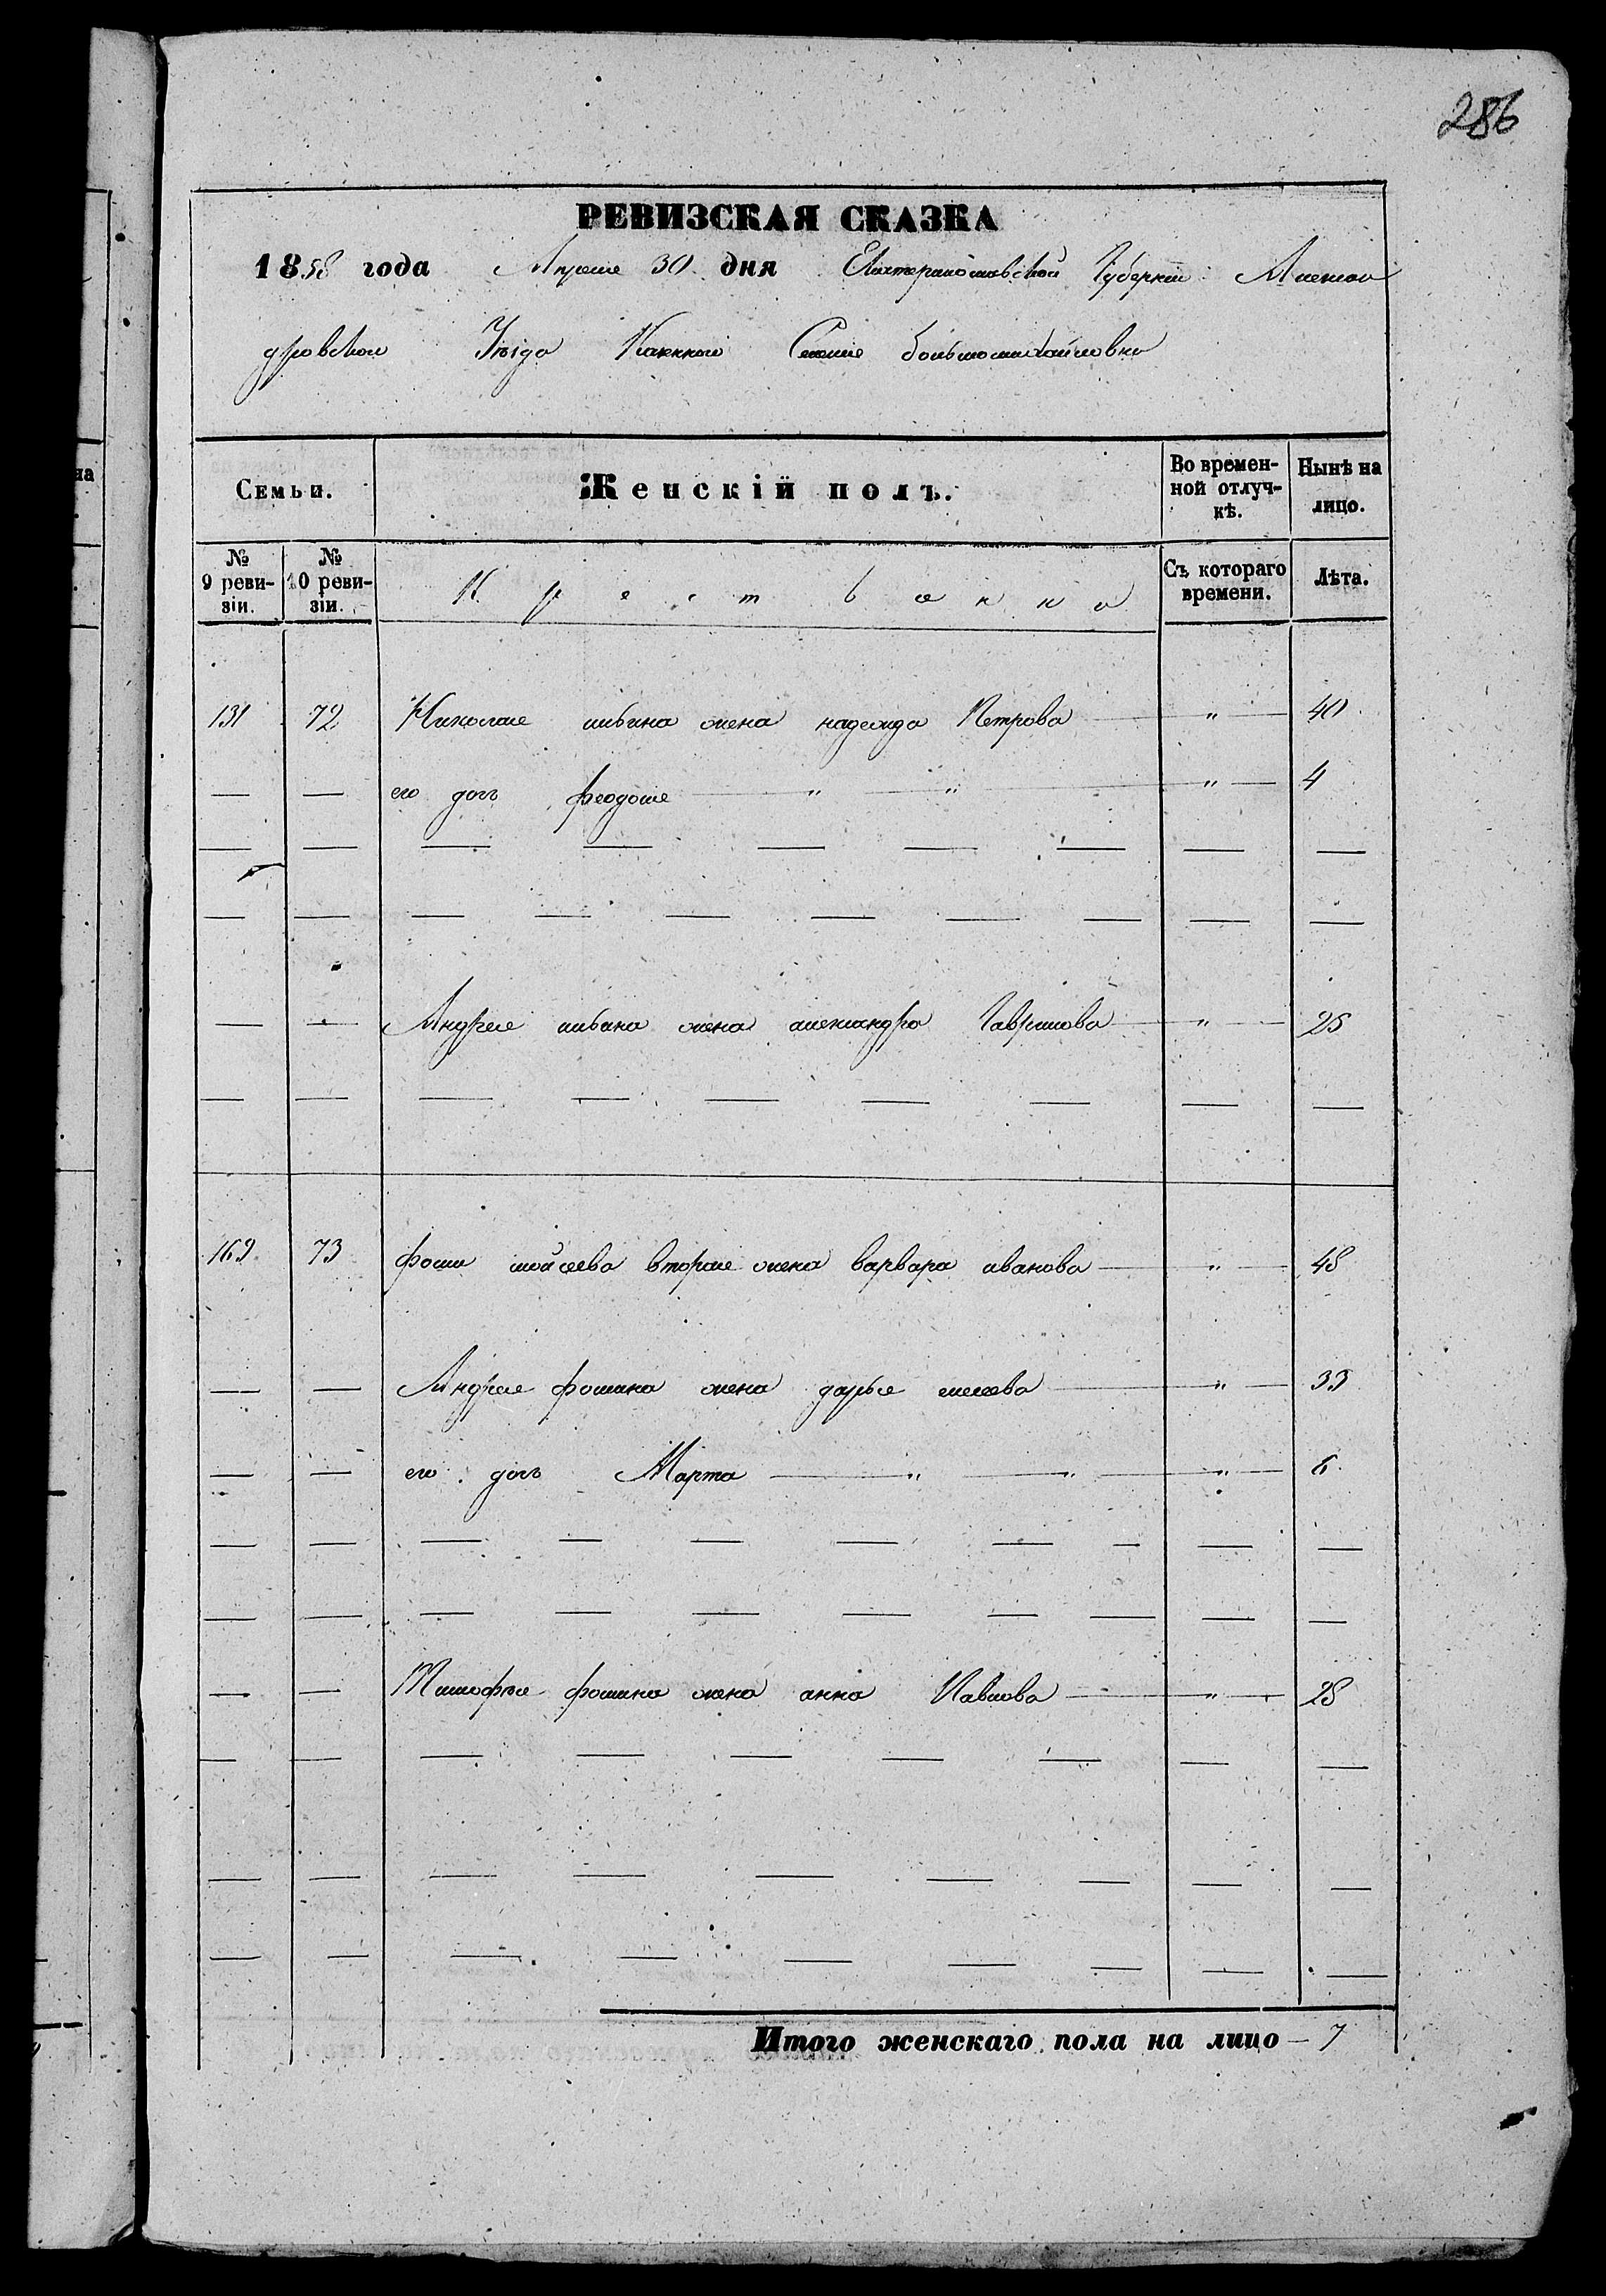 286
РЕВИЗСКАЯ СКАЗКА
1858 года Апреля 30 дня Екатеринославской Губернии Алексан
дровского Уезда Казенного Селения большомихайловки
на
Семьи. Женскій полъ. Во времен- Нынѣ на
ной отлуч- лицо.
кѣ.
№ № Съ котораго Лѣта.
9 реви- 10 реви- времени.
зіи. зіи.
Крестьянко
131 72 Николая савина жена надежда Петрова — " — 40
— — его дочь феодося — " — " — " — 4
— — Андрея савина жена александра Гаврилова — " — 25
169 73 фомы мойсеева вторая жена варвара иванова — " — 48
— — Андрея фомина жена дарья елисеева — " — 33
— — его дочь Марта — " — " — " — 6
— — Тимофея фомина жена анна Павлова — " — 28
Итого женскаго пола на лицо — 7